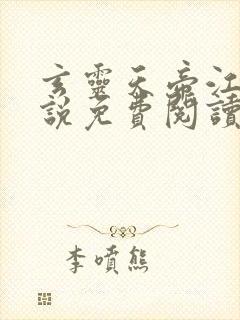 玄靈天帝江
說免費閱讀
李噴熊